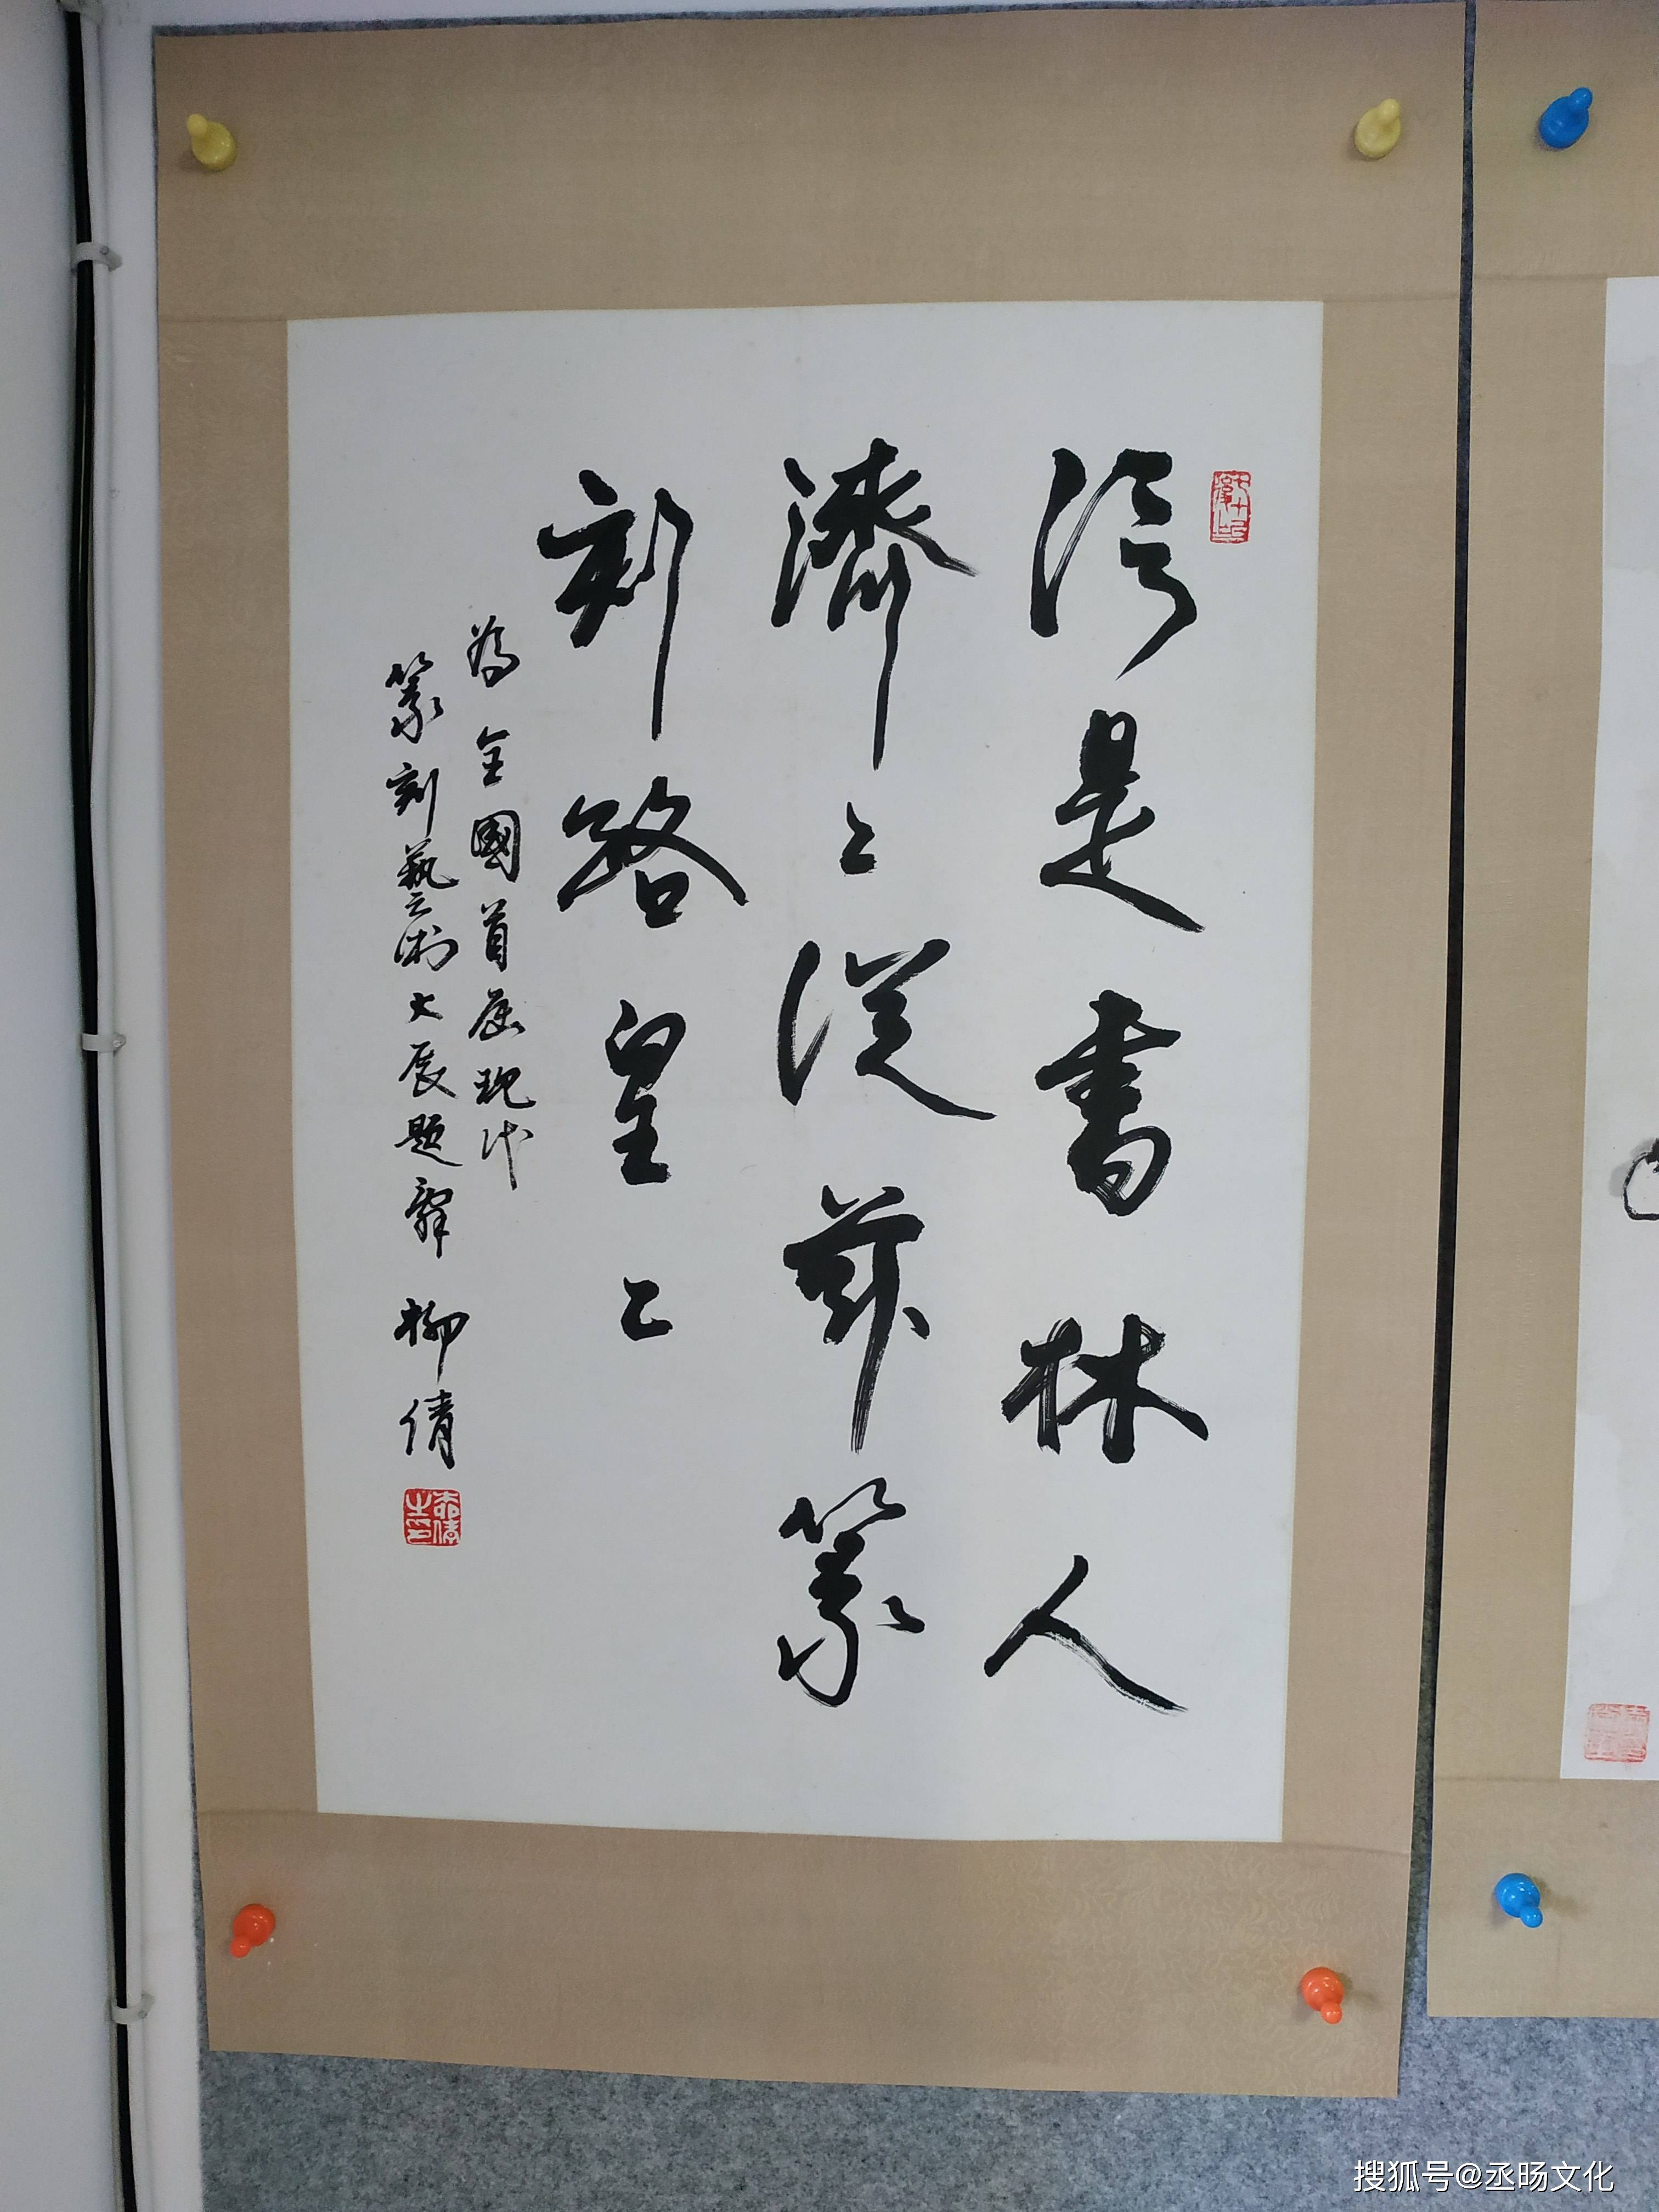 信是書林人
濟〻從茲篆
刻路皇〻
為全國首屆現代
篆刻藝術大展題辭 柳倩
柳倩之印
搜狐号@丞旸文化